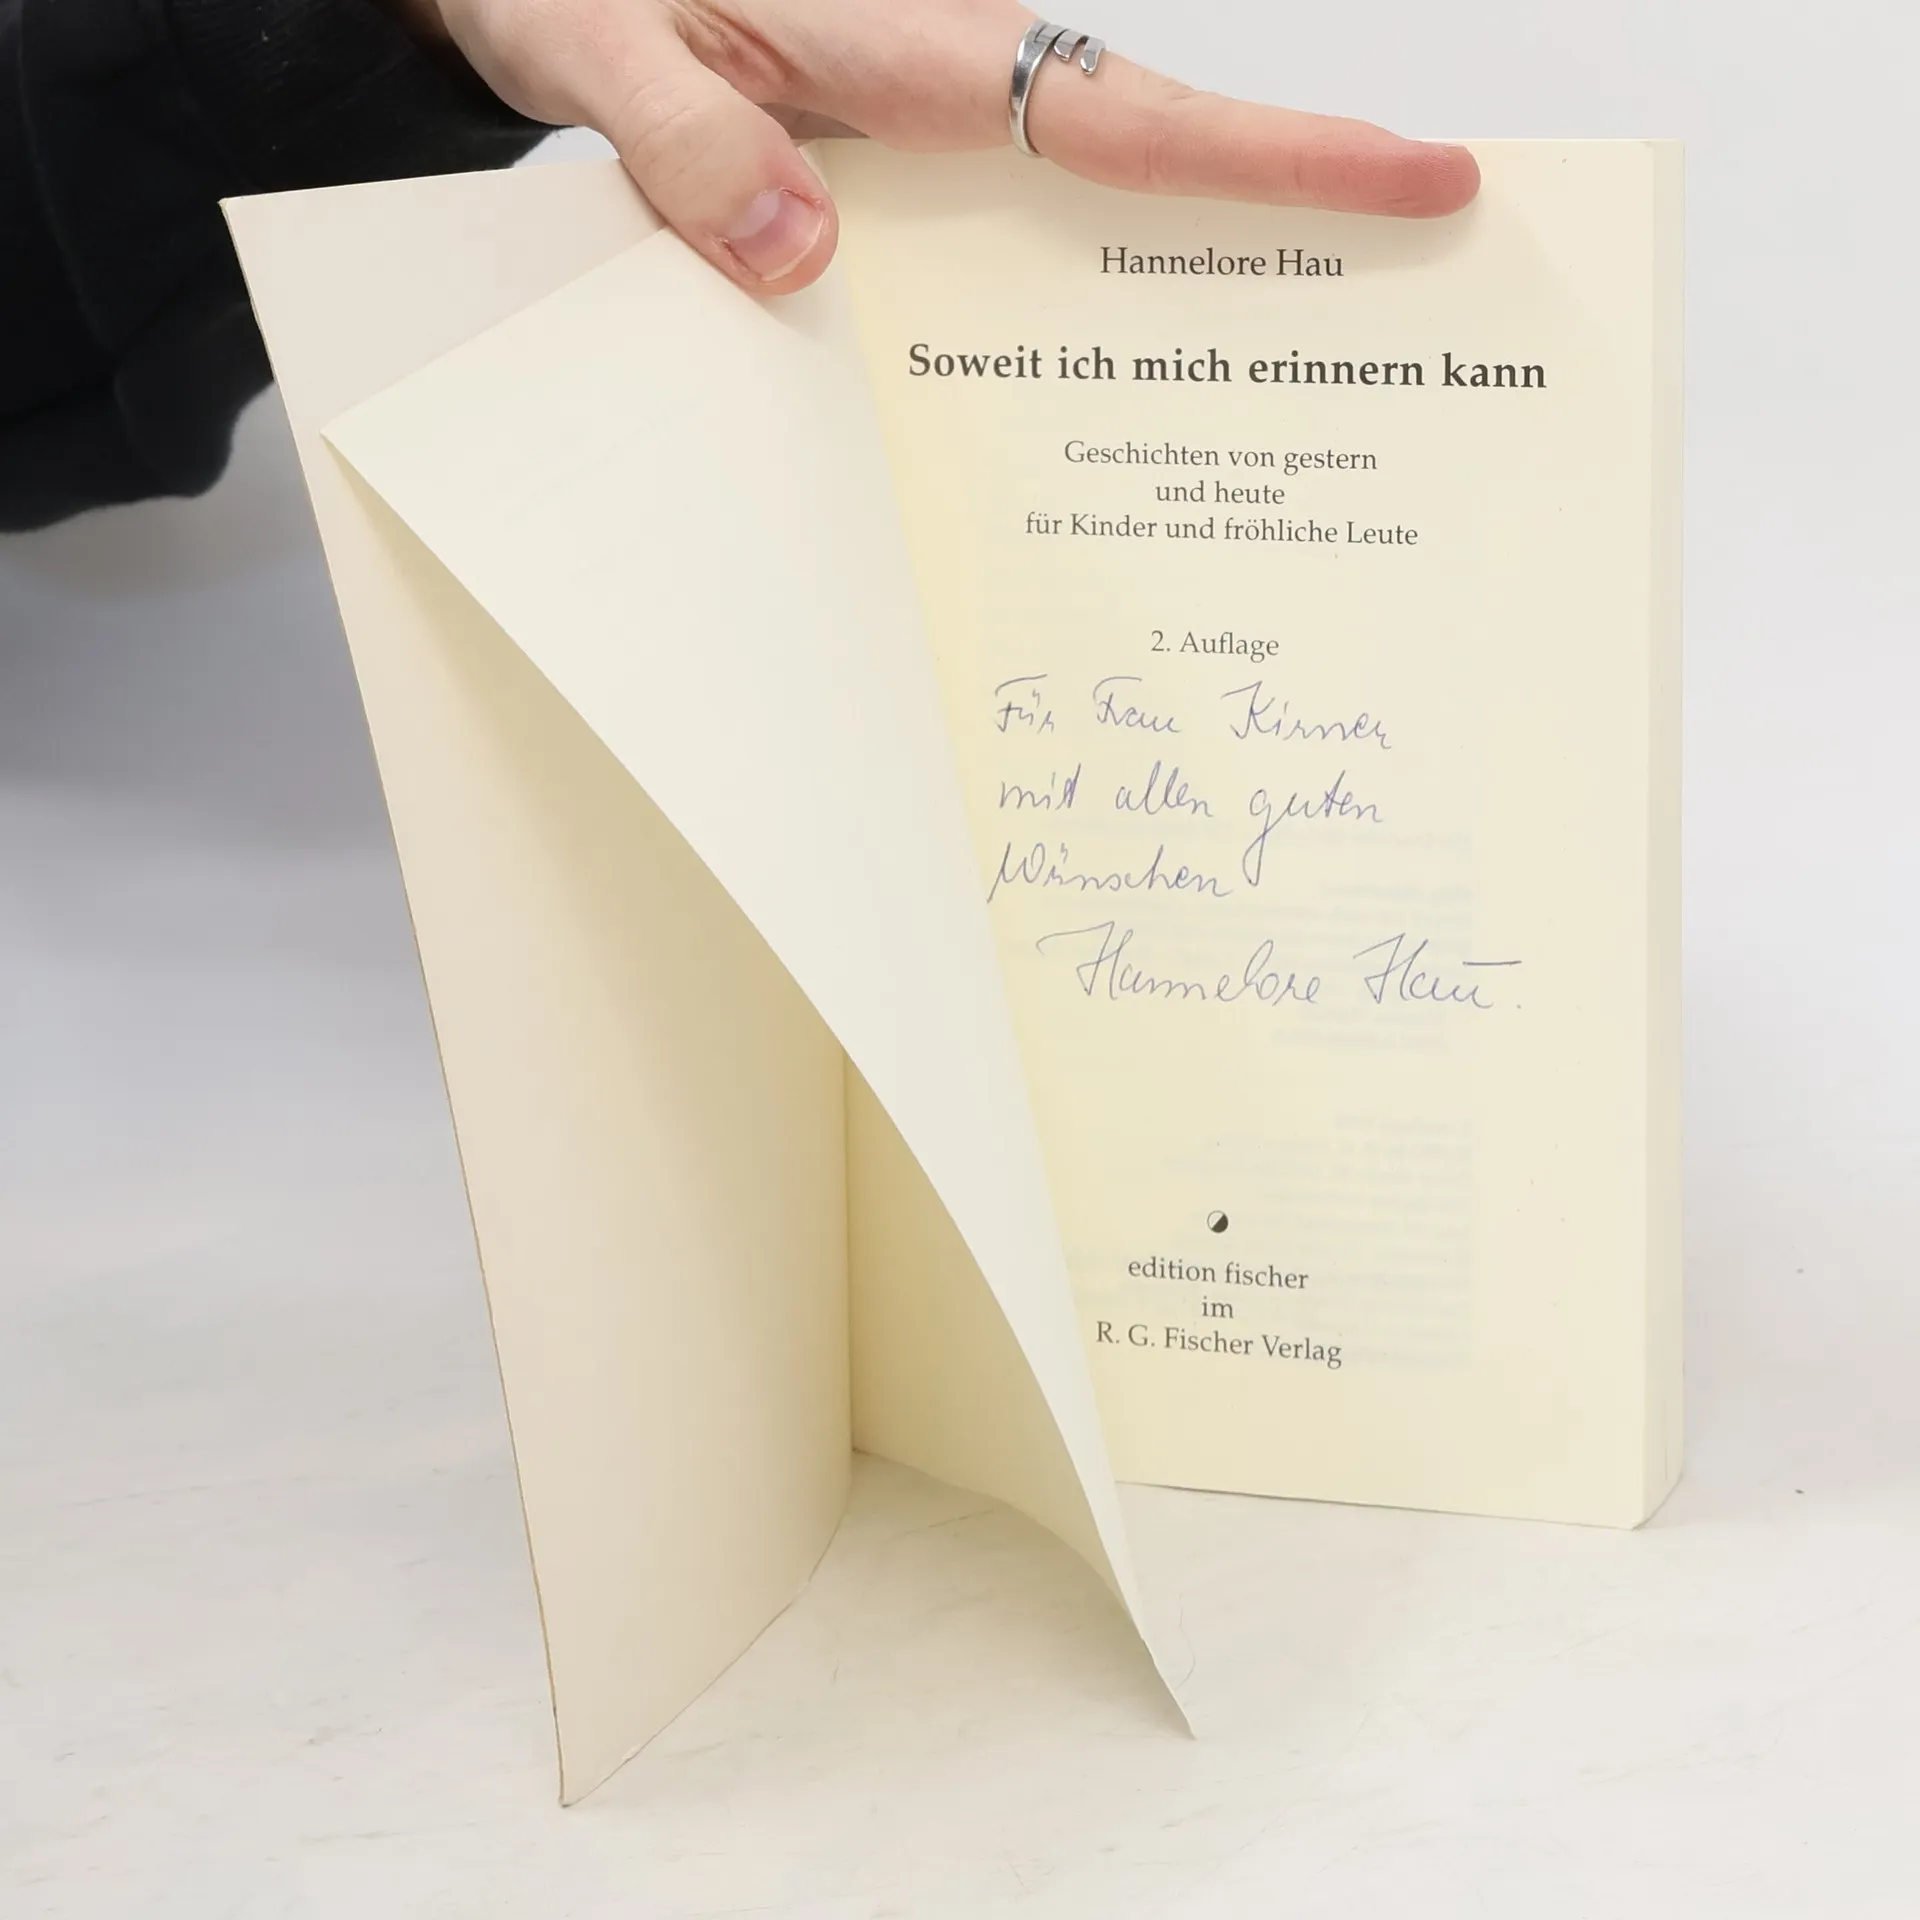 Hannelore Hau
Soweit ich mich erinnern kann
Geschichten von gestern
und heute
für Kinder und fröhliche Leute
2. Auflage
Für Frau Kirner
mit allen guten
Wünschen
Hannelore Hau.
edition fischer
im
R. G. Fischer Verlag